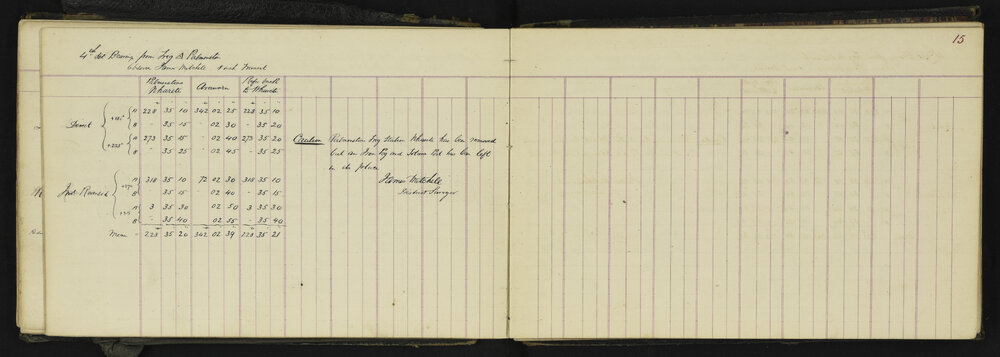 15
4th set Bearing from Trig B Palmerston
Observer James Mitchell 8 inch
Palmerston Aramoana Refer back
Wharete to Wharete
A 228 35 10 342 02 25 228 35 10
B - 35 15 - 02 30 - 35 20
Direct
A 273 35 15 - 02 40 273 35 20
B - 35 25 - 02 45 - 35 25
A 318 35 10 72 02 30 318 35 10
B - 35 15 - 02 40 - 35 15
Inst Reversed
A 3 35 30 02 50 3 35 30
B - 35 40 02 55 - 35 40
Mean - 228 35 20 342 02 39 228 35 21
Caution Palmerston Trig Station Wharete has been removed
but an Iron Peg and has been left
in its place
James Mitchell
District Surveyor